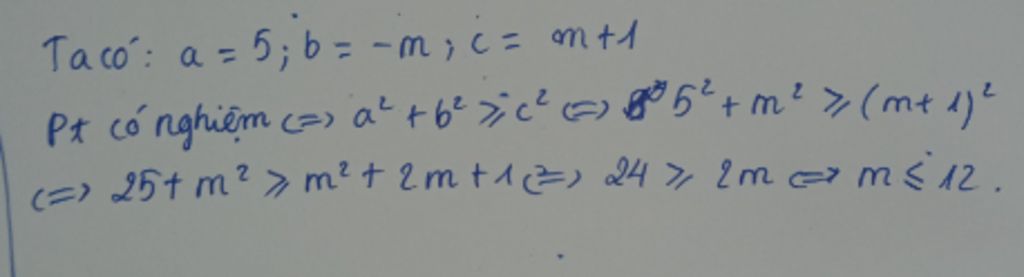 Ta có: a = 5; b = -m; c = m+1
Pt có nghiệm <=> a² + b² ≥ c² <=> 5² + m² ≥ (m+1)²
<=> 25 + m² ≥ m² + 2m + 1 <=> 24 ≥ 2m <=> m ≤ 12.